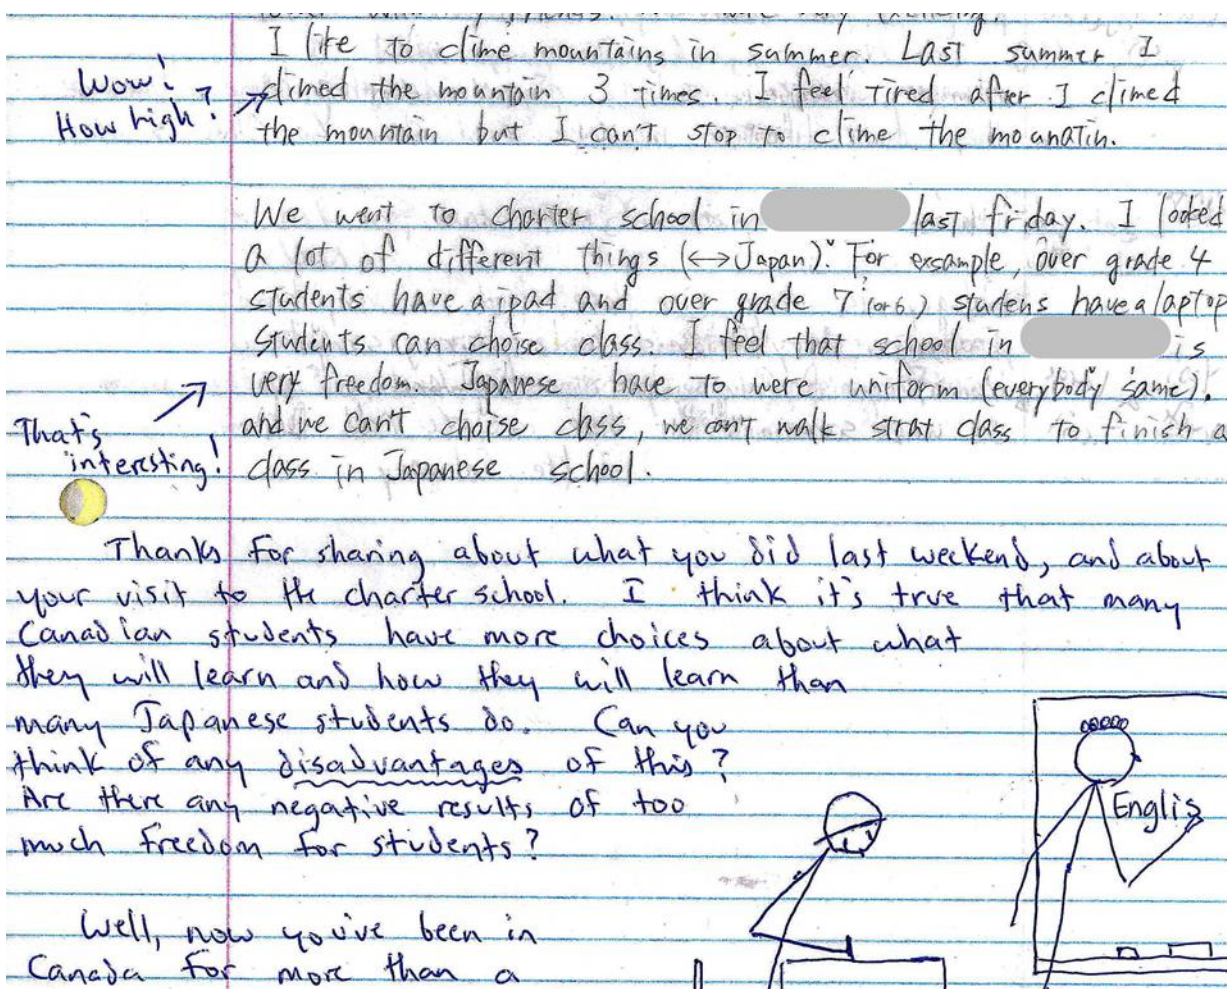 I like to clime mountains in summer. Last summer I
Wow!
How high?
climed the mountain 3 times. I feel tired after I climed
the mountain but I can't stop to clime the mounatin.
We went to charter school in last friday. I looked
a lot of different things (↔Japan). For exsample, over grade 4
students have a ipad and over grade 7 (or 6) studens have a laptop
students can choise class. I feel that school in is
very freedom. Japanese have to were uniform (everybody same).
That's
interesting!
and we can't choise class, we can't walk strat class to finish a
class in Japanese school.
Thanks for sharing about what you did last weekend, and about
your visit to the charter school. I think it's true that many
Canadian students have more choices about what
they will learn and how they will learn than
many Japanese students do. Can you
think of any disadvantages of this?
Are there any negative results of too
much freedom for students?
Englis
Well, now you've been in
Canada for more than a